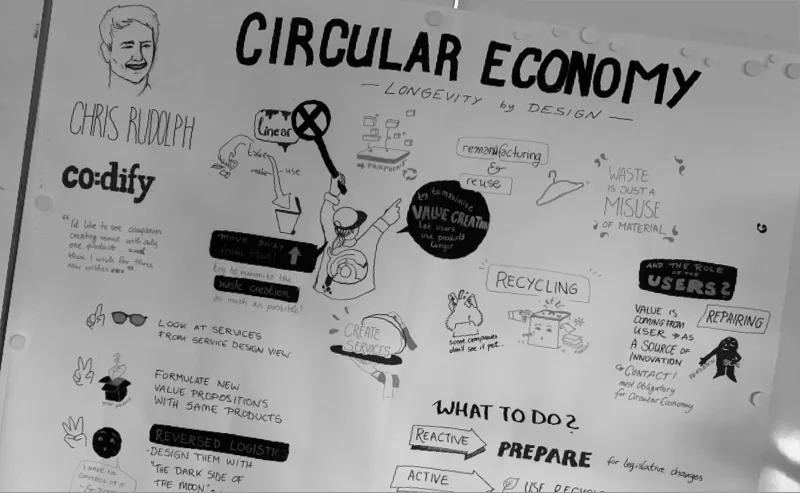 CIRCULAR ECONOMY
— LONGEVITY by DESIGN —
CHRIS RUDOLPH
co:dify
"I'd like to see companies
creating revenue with only
one product and
then I wish for three
new wishes"
Linear
take
make
use
MOVE AWAY
from this!
try to minimize the
waste creation
as much as possible!
try to maximize
VALUE CREATION
let users
use products
longer
remanufacturing
&
reuse
WASTE
IS JUST A
MISUSE
OF MATERIAL
RECYCLING
some companies
don't see it yet...
CREATE
SERVICES
AND THE ROLE
OF THE
USERS?
VALUE IS
COMING FROM
USER → AS
A SOURCE OF
INNOVATION
CONTACT!
most obligatory
for Circular Economy
REPAIRING
LOOK AT SERVICES
FROM SERVICE DESIGN VIEW
FORMULATE NEW
VALUE PROPOSITIONS
WITH SAME PRODUCTS
REVERSED LOGISTICS
- DESIGN THEM WITH
"THE DARK SIDE OF
THE MOON" -
I HAVE NO
CONTROL OF IT
WHAT TO DO?
REACTIVE
PREPARE for legislative changes
ACTIVE
USE